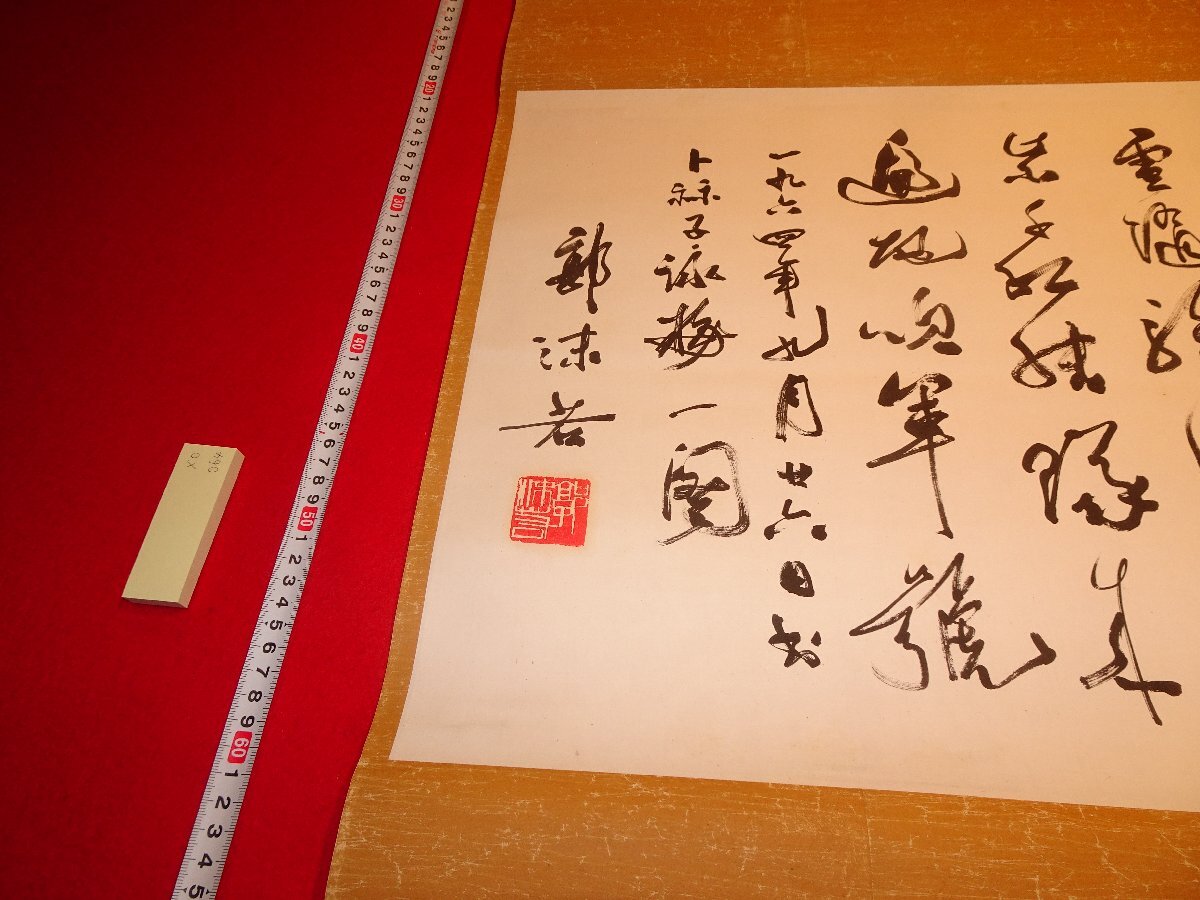 雪隨驕
紫千紅結隊來
遍地吹軍號
一九六四年九月廿六日书
卜祘子詠梅一闋
郭沫若
郭沫若
1 2 3 4 5 6 7 8 9 20 1 2 3 4 5 6 7 8 9 30 1 2 3 4 5 6 7 8 9 40 1 2 3 4 5 6 7 8 9 50 1 2 3 4 5 6 7 8 9 60 1 2 3 4 5